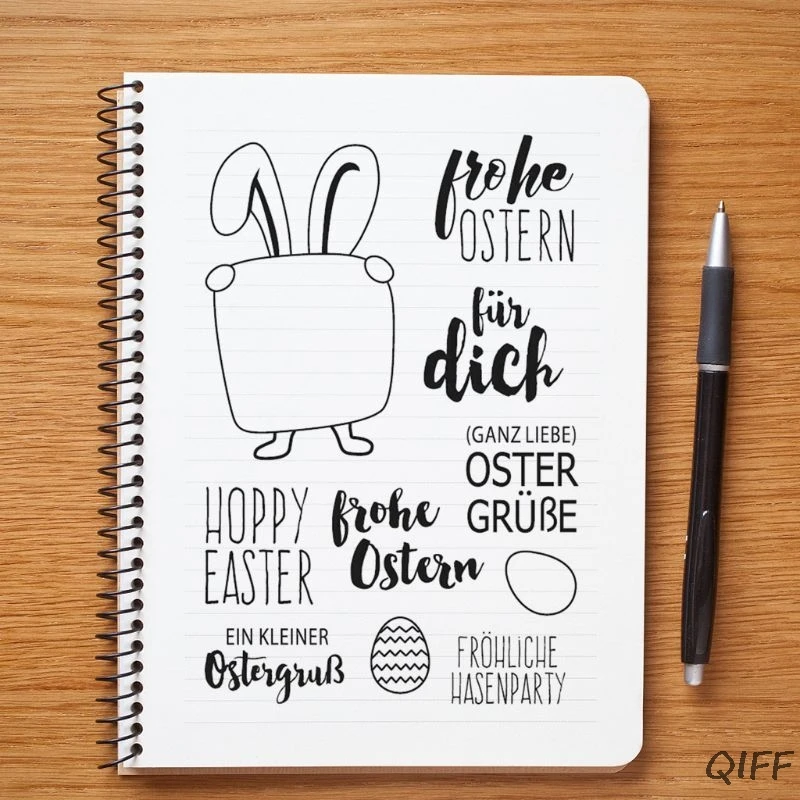 frohe
OSTERN
für
dich
(GANZ LIEBE)
OSTER
GRÜßE
HOPPY
EASTER
frohe
Ostern
EIN KLEINER
Ostergruß
FRÖHLICHE
HASENPARTY
QIFF